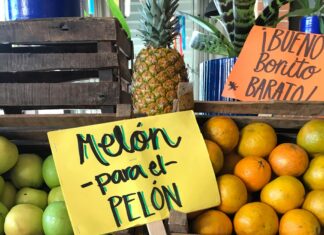 Melón
-para el-
PELÓN
¡BUENO
Bonito
BARATO!